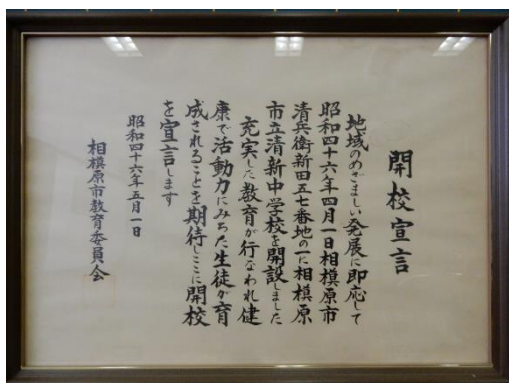 開校宣言
地域のめざましい発展に即応して
昭和四十六年四月一日相模原市
清兵衛新田五七番地の一に相模原
市立清新中学校を開設しました
充実した教育が行なわれ健
康で活動力にみちた生徒が育
成されることを期待しここに開校
を宣言します
昭和四十六年五月一日
相模原市教育委員会